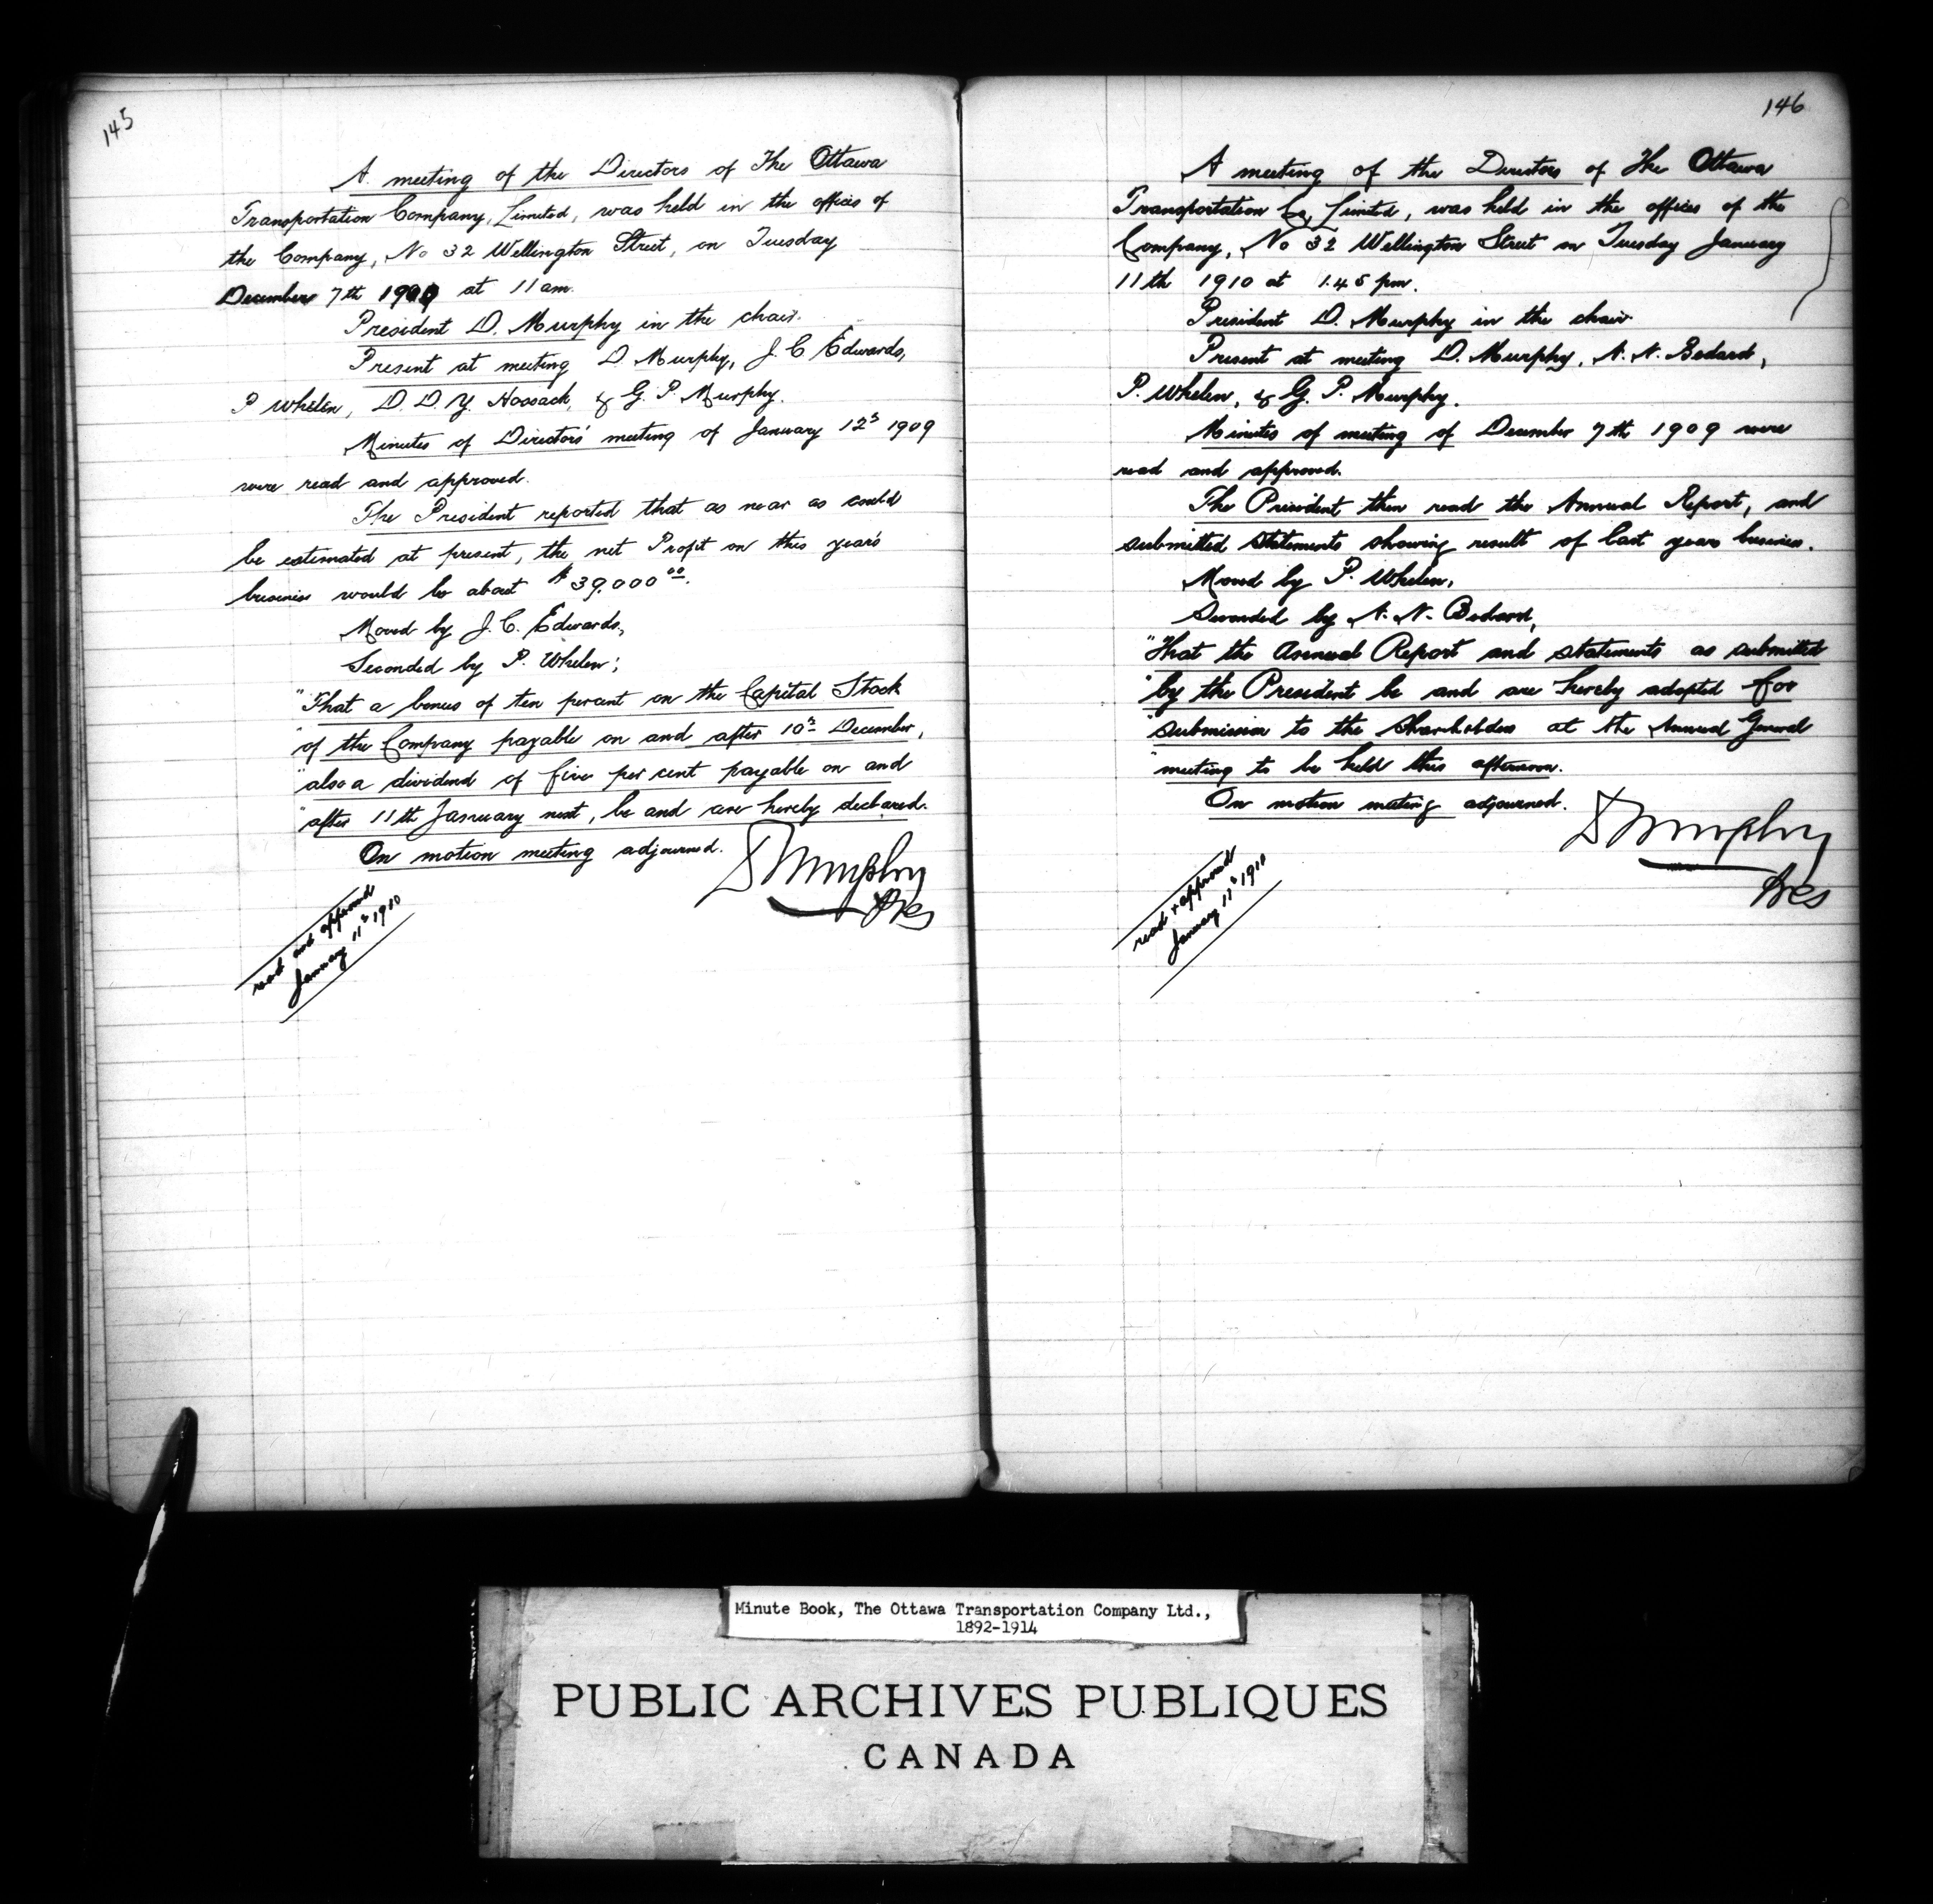 145
A meeting of the Directors of The Ottawa
Transportation Company, Limited, was held in the offices of
the Company, No 32 Wellington Street, on Tuesday
December 7th 1909 at 11 am.
President D. Murphy in the chair.
Present at meeting D Murphy, J. C Edwards,
P Whelen, D. D. Y. Hossack, & G. P. Murphy.
Minutes of Directors' meeting of January 12th 1909
were read and approved.
The President reported that as near as could
be estimated at present, the net Profit on this year's
business would be about $39,000 00.
Moved by J. C. Edwards,
Seconded by P. Whelen;
"That a bonus of ten percent on the Capital Stock
"of the Company payable on and after 10th December,
"also a dividend of five per cent payable on and
"after 11th January next, be and are hereby declared.
On motion meeting adjourned.
D Murphy
Pres
read and approved
January 11th 1910
146
A meeting of the Directors of The Ottawa
Transportation Co, Limited, was held in the offices of the
Company, No 32 Wellington Street on Tuesday January
11th 1910 at 1.45 pm.
President D. Murphy in the chair.
Present at meeting D. Murphy, N. N. Bedard,
P. Whelen, & G. P. Murphy.
Minutes of meeting of December 7th 1909 were
read and approved.
The President then read the Annual Report, and
submitted statements showing result of last years business.
Moved by P. Whelen,
Seconded by N. N. Bedard,
"That the Annual Report and statements as submitted
"by the President be and are hereby adopted for
"submission to the Shareholders at the Annual General
"meeting to be held this afternoon.
On motion meeting adjourned.
D Murphy
Pres
read & approved
January 11th 1910
Minute Book, The Ottawa Transportation Company Ltd.,
1892-1914
PUBLIC ARCHIVES PUBLIQUES
CANADA